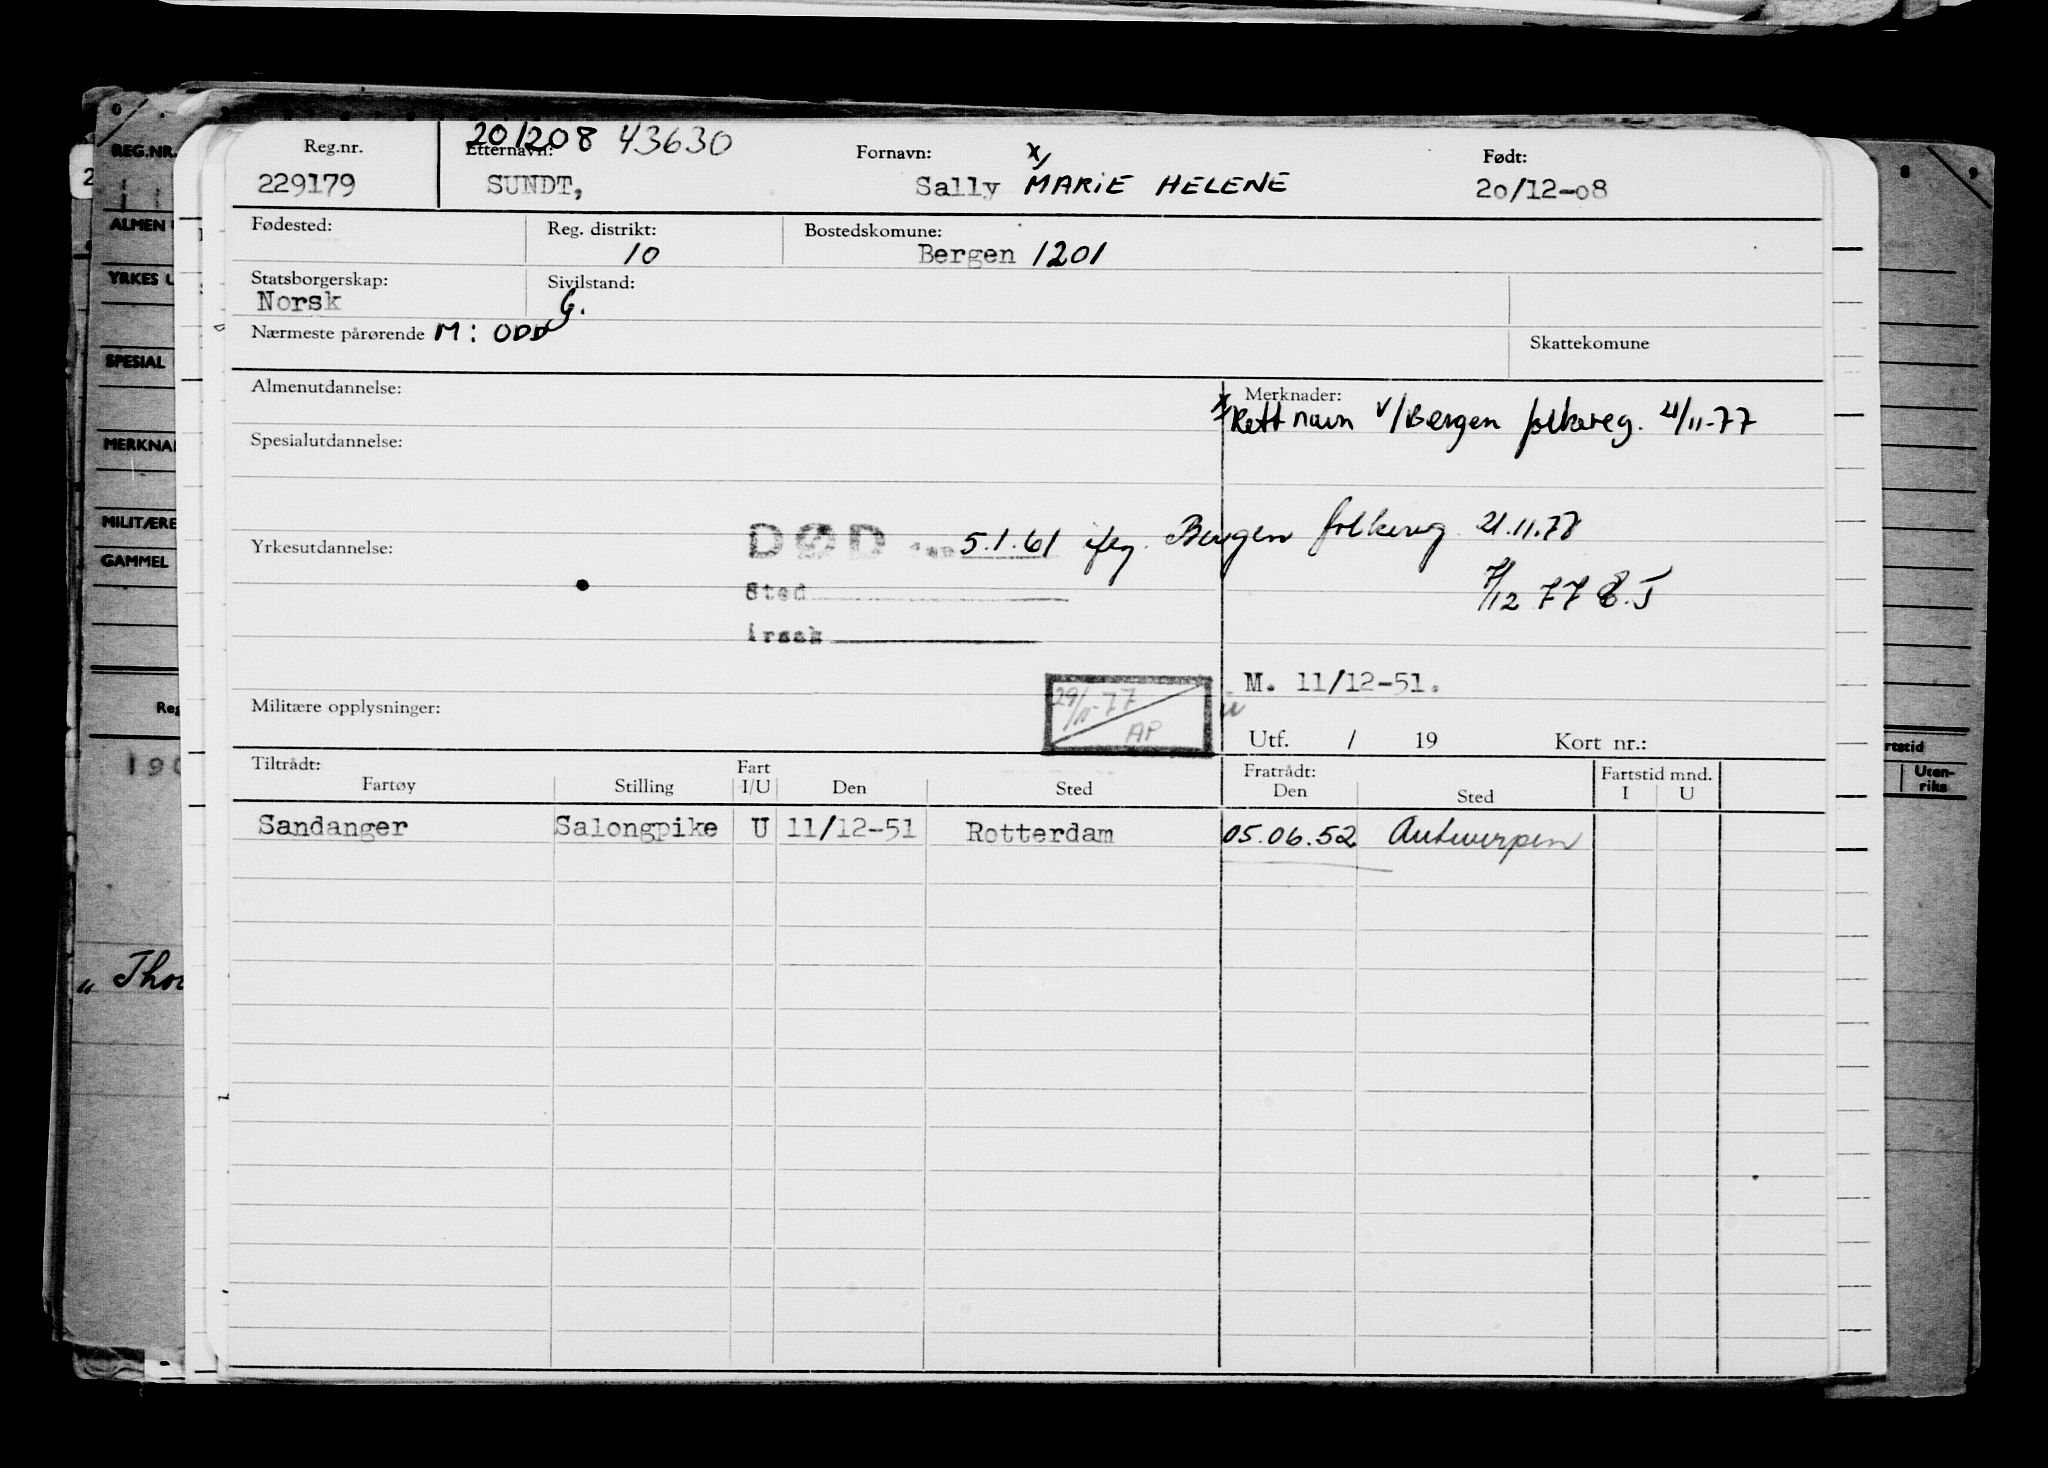 201208 43630
Reg.nr. Etternavn: Fornavn: x, Født:
229179 SUNDT, Sally MARIE HELENE 20/12-08
Fødested: Reg. distrikt: Bostedskomune:
10 Bergen 1201
Statsborgerskap: Sivilstand:
Norsk G.
Nærmeste pårørende M: ODD Skattekomune
Almenutdannelse: Merknader:
x, Rett navn v/Bergen folkereg. 21/11-77
Spesialutdannelse:
DØD 5.1.61 iflg. Bergen folkereg 21.11.77
Yrkesutdannelse:
Sted 7/12 77
Årsak
M. 11/12-51.
29/11-77
Militære opplysninger: AP
Utf. / 19 Kort nr.:
Tiltrådt: Fart Fratrådt: Fartstid mnd.
Fartøy Stilling I/U Den Sted Den Sted I U
Sandanger Salongpike U 11/12-51 Rotterdam 05.06.52 Antwerpen
REG.NR.
2
ALMEN
YRKES U
SPESIAL
MERKNA
MILITÆRE
GAMMEL
Reg
190
" Tho
8 9
rtstid
Uten-
riks